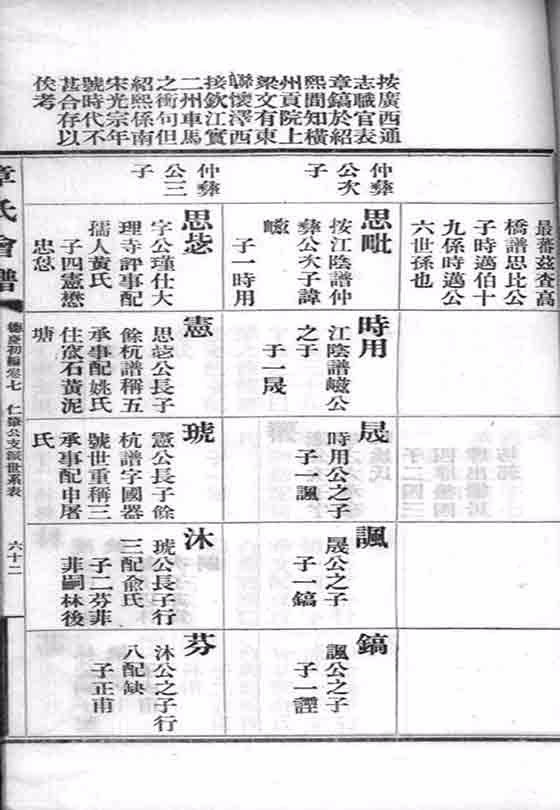 按廣西通
志職官表
章鎬於紹
熙間知橫
州貢院上
梁文有東
聯懷澤西
接欽江實
二州車馬
之衝句但
紹熙係南
宋光宗年
號時代不
甚合存以
俟考
最蕃茲查高
橋譜思比公
子時邁伯十
九係時邁公
六世孫也
仲彝
公次
子
思毗
按江陰譜仲
彝公次子諱
子一時用
時用
江陰譜巇公
之子
子一晟
晟
時用公之子
子一諷
諷
晟公之子
子一鎬
鎬
諷公之子
仲彝
公三
子
思毖
字公瑾仕大
理寺評事配
孺人黃氏
子四憲懋
忠忿
憲
思毖公長子
餘杭譜稱五
承事配姚氏
住窯石黃泥
塘
琥
憲公長子餘
杭譜字國器
號世重稱三
承事配申屠
氏
沐
琥公長子行
三配兪氏
子二芬菲
菲嗣林後
芬
沐公之子行
八配缺
子正甫
章氏會譜
德慶初編卷七
仁肇公支派世系表
六十二